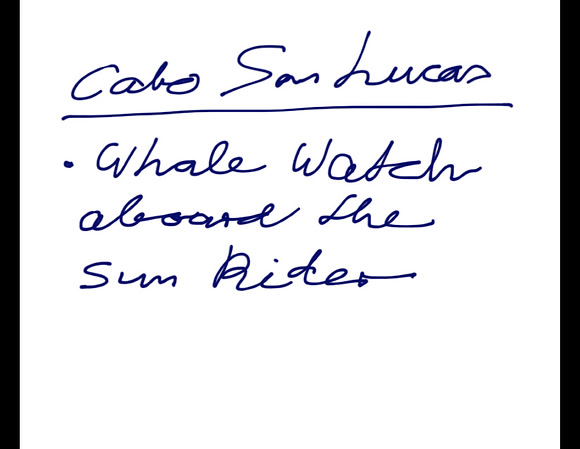 Cabo San Lucas
• Whale Watch
aboard the
Sun Rider